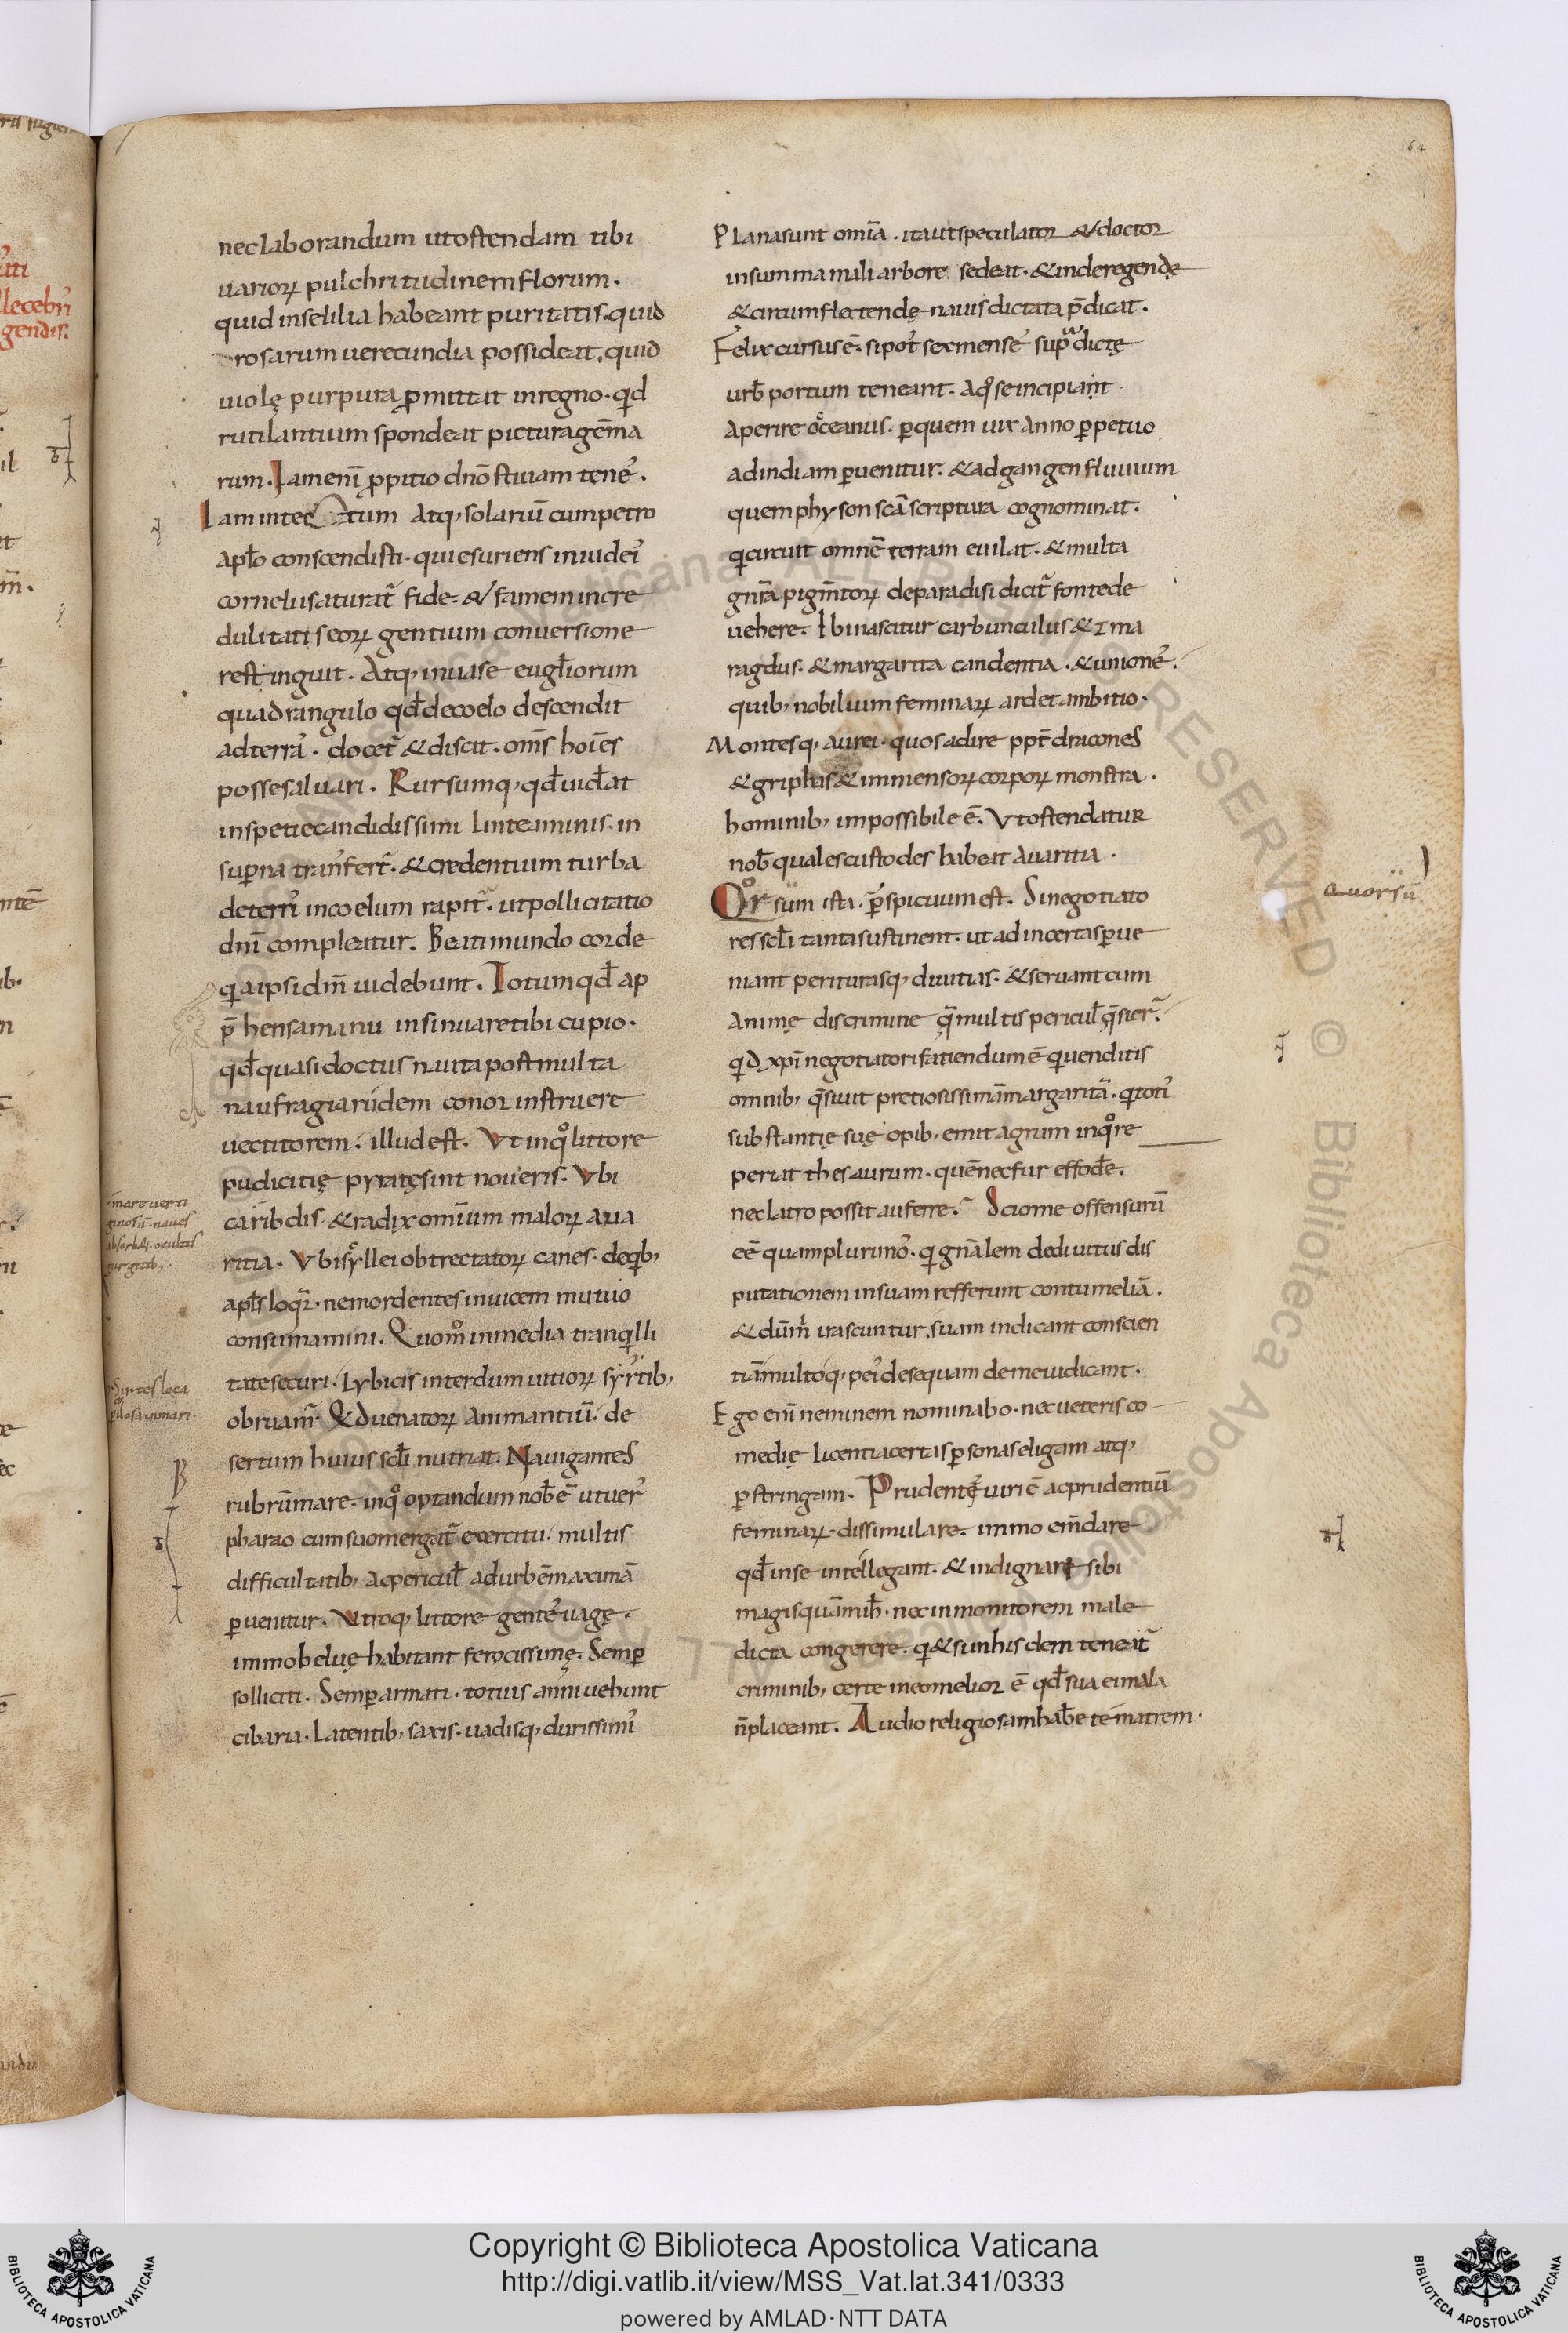 164
nec laborandum ut ostendam tibi
uarioꝝ pulchritudinem florum.
quid inse lilia habeant puritatis. quid
rosarum uerecundia possideat, quid
uiolę purpura ꝓmittat inregno. qd
rutilantium spondeat pictura gēma
rum. Iam enī ꝓpitio dnō stiuam tenes̄.
Iam intectum atq; solariū cum petro
apłō conscendisti. qui esuriens iniudeis̄
corneli saturat̄ fide. & famem incre
dulitatis eoꝝ gentium conuersione
restinguit. Atq; inuase eugłiorum
quadrangulo qđ decoelo descendit
adterrā. docet̄ & discit. om̄s hoīes
posse saluari. Rursumq; qđ uiđat
inspetie candidissimi linteaminis. in
suꝑna transfert̄. & credentium turba
deterris̄ incoelum rapit̄. ut pollicitatio
dnī compleatur. Beati mundo corde
qa ipsi dm̄ uidebunt. Totum qđ ap
p̄hensa manu insinuare tibi cupio.
qđ quasi doctus nauta post multa
naufragia rudem conor instruere
uectitorem. illud est. Vt inqͦ littore
pudicitię pyratę sint noueris. Vbi
caribdis. & radix omīum maloꝝ aua
ritia. Vbi syllei obtrectatoꝝ canes. deqb;
apłs loqt̄. ne mordentes inuicem mutuo
consumamini. Quomͦ inmedia tranqlli
tate securi. Lybicis interdum uitioꝝ syrtib;
obruam̄. Quid uenatoꝝ animantiū. de
sertum huius scłi nutriat. Nauigantes
rubrūmare. inqͦ optandum nob̄ ē ut uerͥ
pharao cum suo mergat̄ exercitu. multis
difficultatib; ac pericuł ad urbē maximā
ꝑuenitur. Vtroq; littore gentes̄ uagę.
immo beluę habitant ferocissimę. Semꝑ
solliciti. Semꝑ armati. totius anni uehunt
cibaria. Latentib; saxis. uadisq; durissimis̄
Plana sunt omīa. ita ut speculator & doctor
insumma mali arbore sedeat. & inde regendę
& circumflectendę nauis dictata p̄dicat.
Felix cursus ē. si post̄ sex menses̄ supᷓdictę
urb̄ portum teneant. Aqͦ se incipiant
aperire oceanus. ꝑquem uix anno ꝑpetuo
ad indiam ꝑuenitur. & ad gangen fluuium
quem physon scā scriptura cognominat.
q circuit omnē terram euilat. & multa
gnr̄a pigm̄toꝝ deparadisi dicit̄ fonte de
uehere. Ibi nascitur carbunculus & zma
ragdus. & margarita candentia. & uniones̄.
quib; nobilium feminaꝝ ardet ambitio.
Montesq; aurei. quos adire ppt̄ dracones
& griphas & immensoꝝ corpoꝝ monstra.
hominib; impossibile ē. Vt ostendatur
nob̄ quales custodes habeat auaritia.
Qͦrsum ista. p̄spicuum est. Si negotiato
res scłi tanta sustinent. ut ad incertas ꝑue
niant periturasq; diuitias. & seruant cum
animę discrimine q̄ multis pericuł q̄sier̄.
qd xp̄i negotiatori fatiendum ē q uenditis
omnib; q̄siuit pretiosissimā margaritā. q totis̄
substantię suę opib; emit agrum inqͦ re
periat thesaurum. quē nec fur effođe.
nec latro possit auferre. Scio me offensurū
eē quamplurimos̄. q gnālem deditiuis dis
putationem insuam refferunt contumeliā.
& dūm̄ irascuntur. suam indicant conscien
tiā multoq; peius̄ de se quam deme iudicant.
Ego enī neminem nominabo. nec ueteris co
medię licentia certas ꝑsonas eligam atq;
ꝑstringam. Prudentę uiri ē ac prudentiū
feminaꝝ. dissimulare. immo em̄dare
qđ inse intellegant. & indignari sibi
magis quā mih̄. nec in monitorem male
dicta congerere. q & si inhisdem teneat̄
criminib; certe in eo melior ē qđ sua ei mala
n̄ placeant. Audio religiosam hab̄e te matrem.
mare uerti
ginosū. naues
absorb&. ocultis
gurgitib;
Sirtes loca
inmari
Quorsū
Copyright © Biblioteca Apostolica Vaticana
http://digi.vatlib.it/view/MSS_Vat.lat.341/0333
powered by AMLAD·NTT DATA
BIBLIOTECA APOSTOLICA VATICANA
BIBLIOTECA APOSTOLICA VATICANA